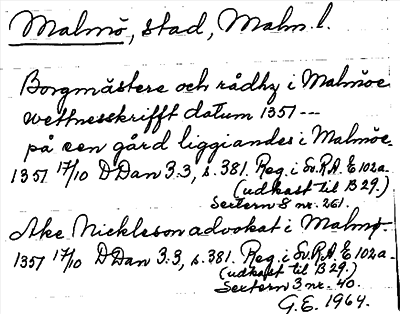 Malmö, stad, Malm. l.
Borgmästere och rådhz i Malmöe
wettnesskrifft datum 1351 ---
på een gård liggiandes i Malmöe.
1351 17/10 D Dan 3:3, s. 381. Reg. i Sv.R.A. E 102a.
(udkast til B 29.)
Sextern 8 nr. 261.
Ake Nickleson advokat i Malmø.
1351 17/10 D Dan 3:3, s. 381. Reg. i Sv.R.A. E 102a.
(udkast til B 29.)
Sextern 3 nr. 40.
G.E. 1964.